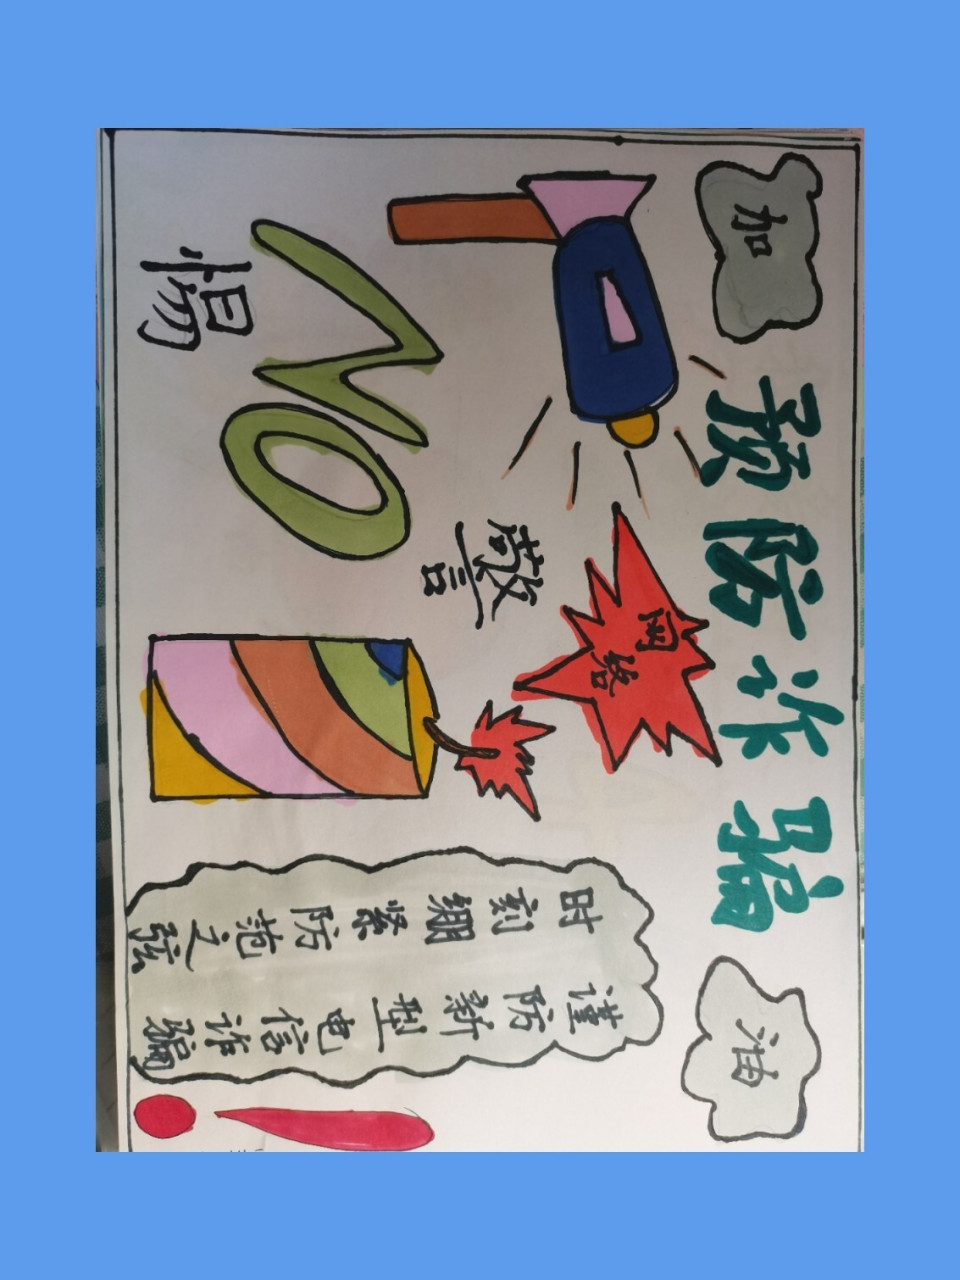 加
预防诈骗
油
网络
警
NO
惕
时刻绷紧防范之弦
谨防新型电信诈骗
！